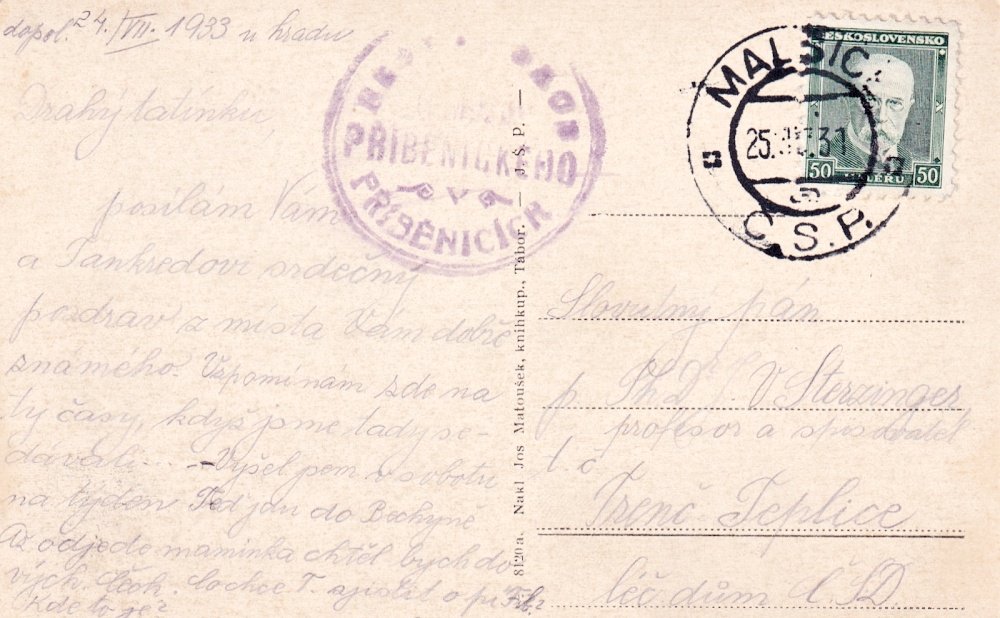 dopol. 24./VII. 1933 u hradu
Drahý tatínku,
posílám Vám
a Tankredovi srdečný
pozdrav z místa Vám dobře
známého. Vzpomínám zde na
ty časy, když jsme tady se-
dávali... - Vyšel jsem v sobotu
na týden. Teď jdu do Bechyně
Až odjede maminka chtěl bych do
vých. Čech. Co chce T. zjistit o
Kde to je?
PŘIBĚNICKÉHO
PŘIBĚNICÍCH
8120a. Nakl Jos Matoušek, knihkup., Tábor. — J. Š. P. —
MALŠIC
25. 31
Č.S.P.
ČESKOSLOVENSKO
50 HALÉŘŮ 50
Slovutný pán
p. PhD V Sterzinger,
profesor a spisovatel
t. č.
Trenč Teplice
léč dům ČSD